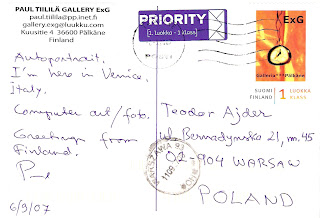 PAUL TIILILÄ GALLERY ExG
paul.tiilila@pp.inet.fi
gallery.exg@luukku.com
Kuusitie 4 36600 Pälkäne
Finland
Autoportrait.
I'm here in Venice,
Italy.
Computer art/foto.
Greetings from
Finland.
6/9/07
PRIORITY
1. luokka - 1 klass
ExG
Galleria Pälkäne
SUOMI
FINLAND
1 LUOKKA
KLASS
Teodor Ajder
ul. Bernadynska 21, m. 45
02-904 WARSAW
POLAND
WARSZAWA 93